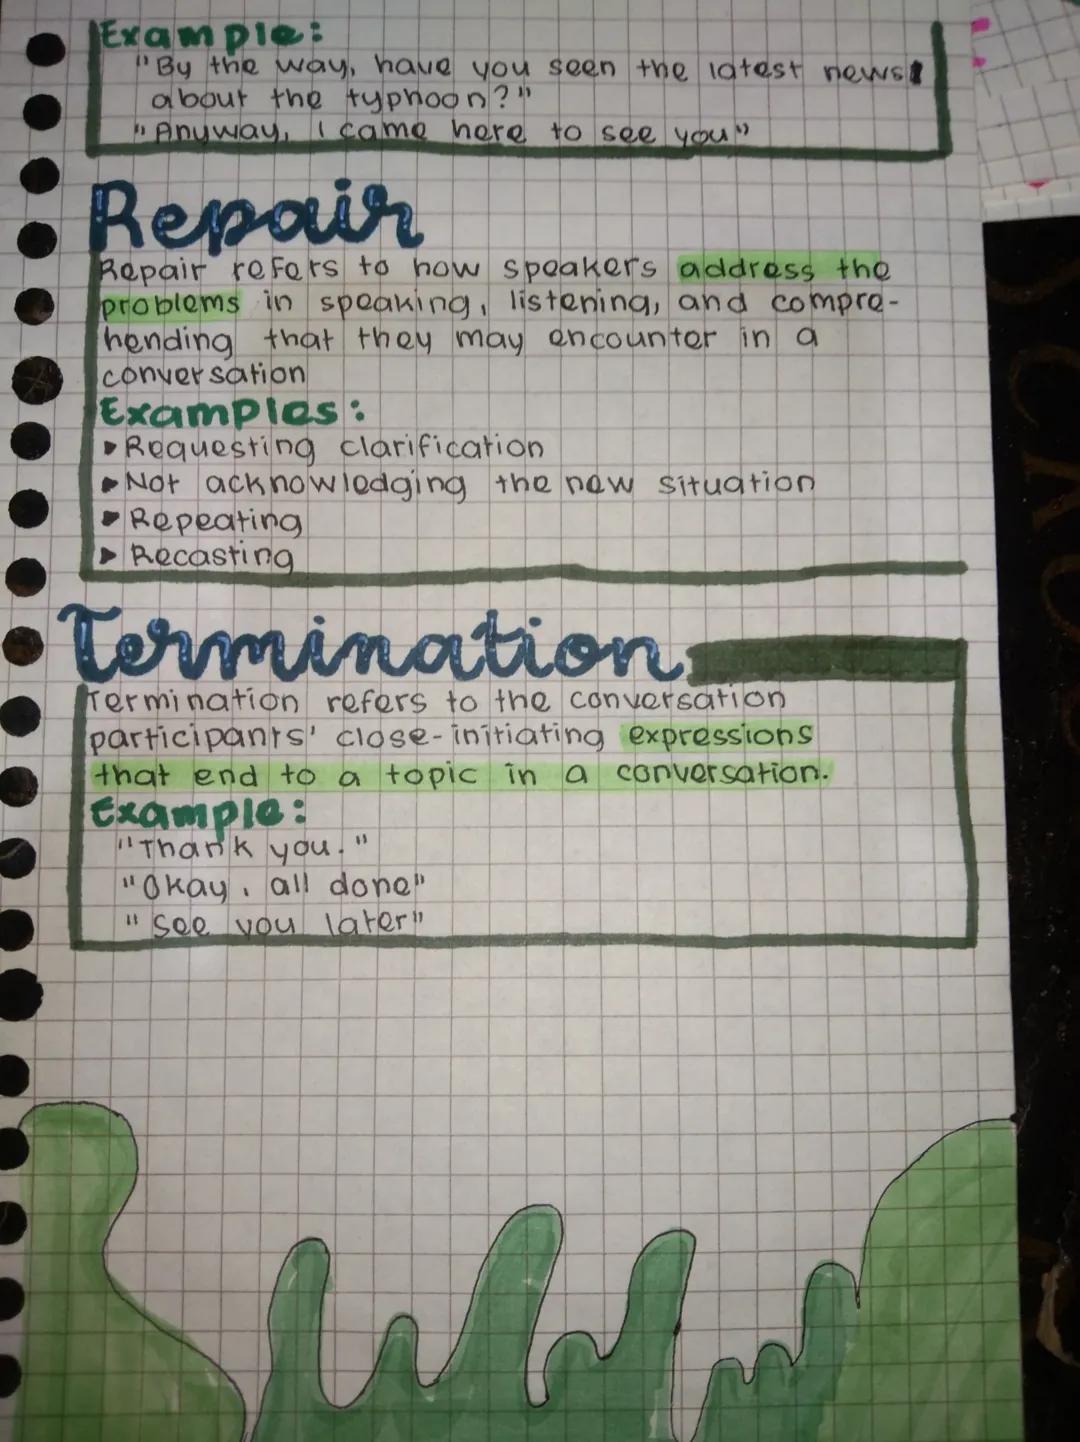 Example:
"By the way, have you seen the latest news
about the typhoon?"
"Anyway, I came here to see you"
Repair
Repair refers to how speakers address the
problems in speaking, listening, and compre-
hending that they may encounter in a
conversation
Examples:
▸Requesting clarification
▸Not acknowledging the new situation
▸Repeating
▸Recasting
Termination
Termination refers to the conversation
participants' close-initiating expressions
that end to a topic in a conversation.
Example:
"Thank you."
"Okay, all done"
"See you later"